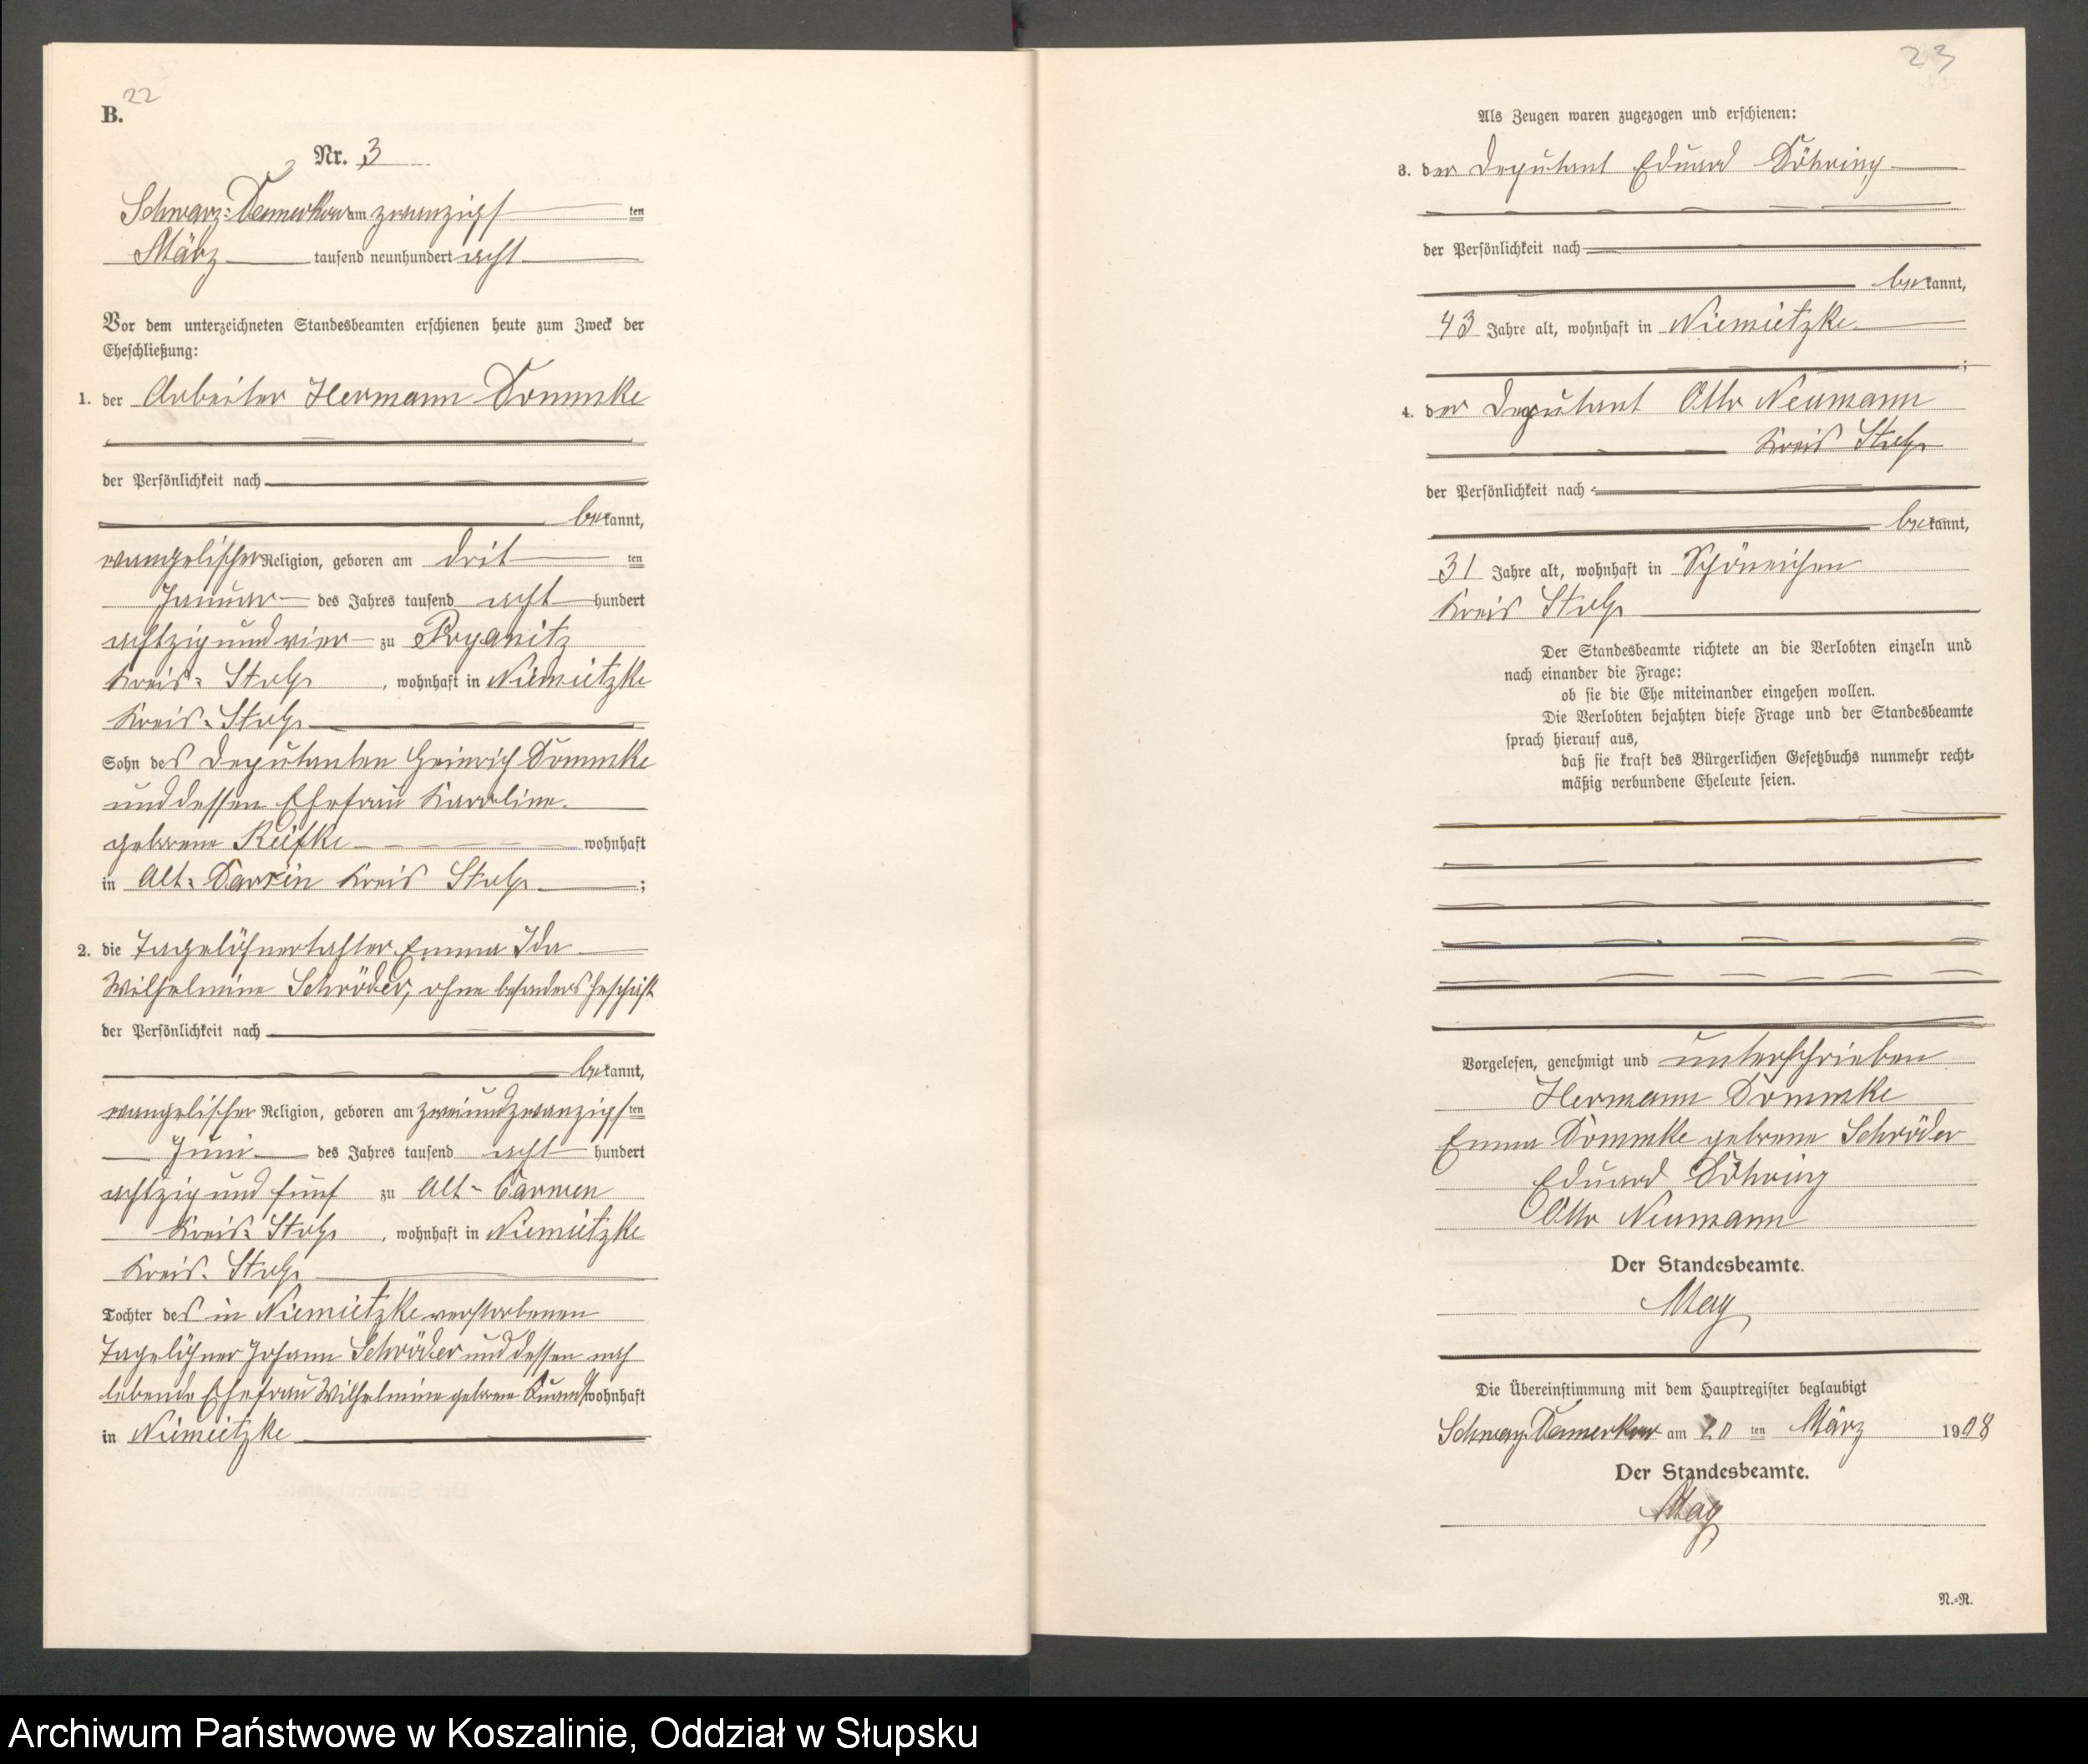 22
B.
Nr. 3
Schwarz-Damerkow am zwanzigsten
März tausend neunhundert acht
Vor dem unterzeichneten Standesbeamten erschienen heute zum Zweck der
Eheschließung:
1. der Arbeiter Hermann Dommke
der Persönlichkeit nach
bekannt,
evangelischer Religion, geboren am dritten
Januar des Jahres tausend acht hundert
achtzig und vier zu Poganitz
Kreis Stolp, wohnhaft in Niemietzke
Kreis Stolp
Sohn des Deputanten Heinrich Dommke
und dessen Ehefrau Karoline
geborene wohnhaft
in Alt-Darsin Kreis Stolp;
2. die Tagelöhnertochter Emma Ida
Wilhelmine Schröder, ohne besonders Geschäft
der Persönlichkeit nach
bekannt,
evangelischer Religion, geboren am zweiundzwanzigsten
Juni des Jahres tausend acht hundert
achtzig und fünf zu Alt-Carmen
Kreis Stolp, wohnhaft in Niemietzke
Kreis Stolp
Tochter des in Niemietzke verstorbenen
Tagelöhner Johann Schröder und dessen noch
lebende Ehefrau Wilhelmine geborene wohnhaft
in Niemietzke
23
Als Zeugen waren zugezogen und erschienen:
3. der Deputant Eduard Döhring
der Persönlichkeit nach
bekannt,
43 Jahre alt, wohnhaft in Niemietzke
;
4. der Deputant Otto Neumann
Kreis Stolp
der Persönlichkeit nach
bekannt,
31 Jahre alt, wohnhaft in Schöneichen
Kreis Stolp
Der Standesbeamte richtete an die Verlobten einzeln und
nach einander die Frage:
ob sie die Ehe miteinander eingehen wollen.
Die Verlobten bejahten diese Frage und der Standesbeamte
sprach hierauf aus,
daß sie kraft des Bürgerlichen Gesetzbuchs nunmehr recht-
mäßig verbundene Eheleute seien.
Vorgelesen, genehmigt und unterschrieben
Hermann Dommke
Emma Dommke geborene Schröder
Eduard Döhring
Otto Neumann
Der Standesbeamte.
May
Die Übereinstimmung mit dem Hauptregister beglaubigt
Schwarz-Damerkow am 20 ten März 1908
Der Standesbeamte.
May
N.-R.
Archiwum Państwowe w Koszalinie, Oddział w Słupsku